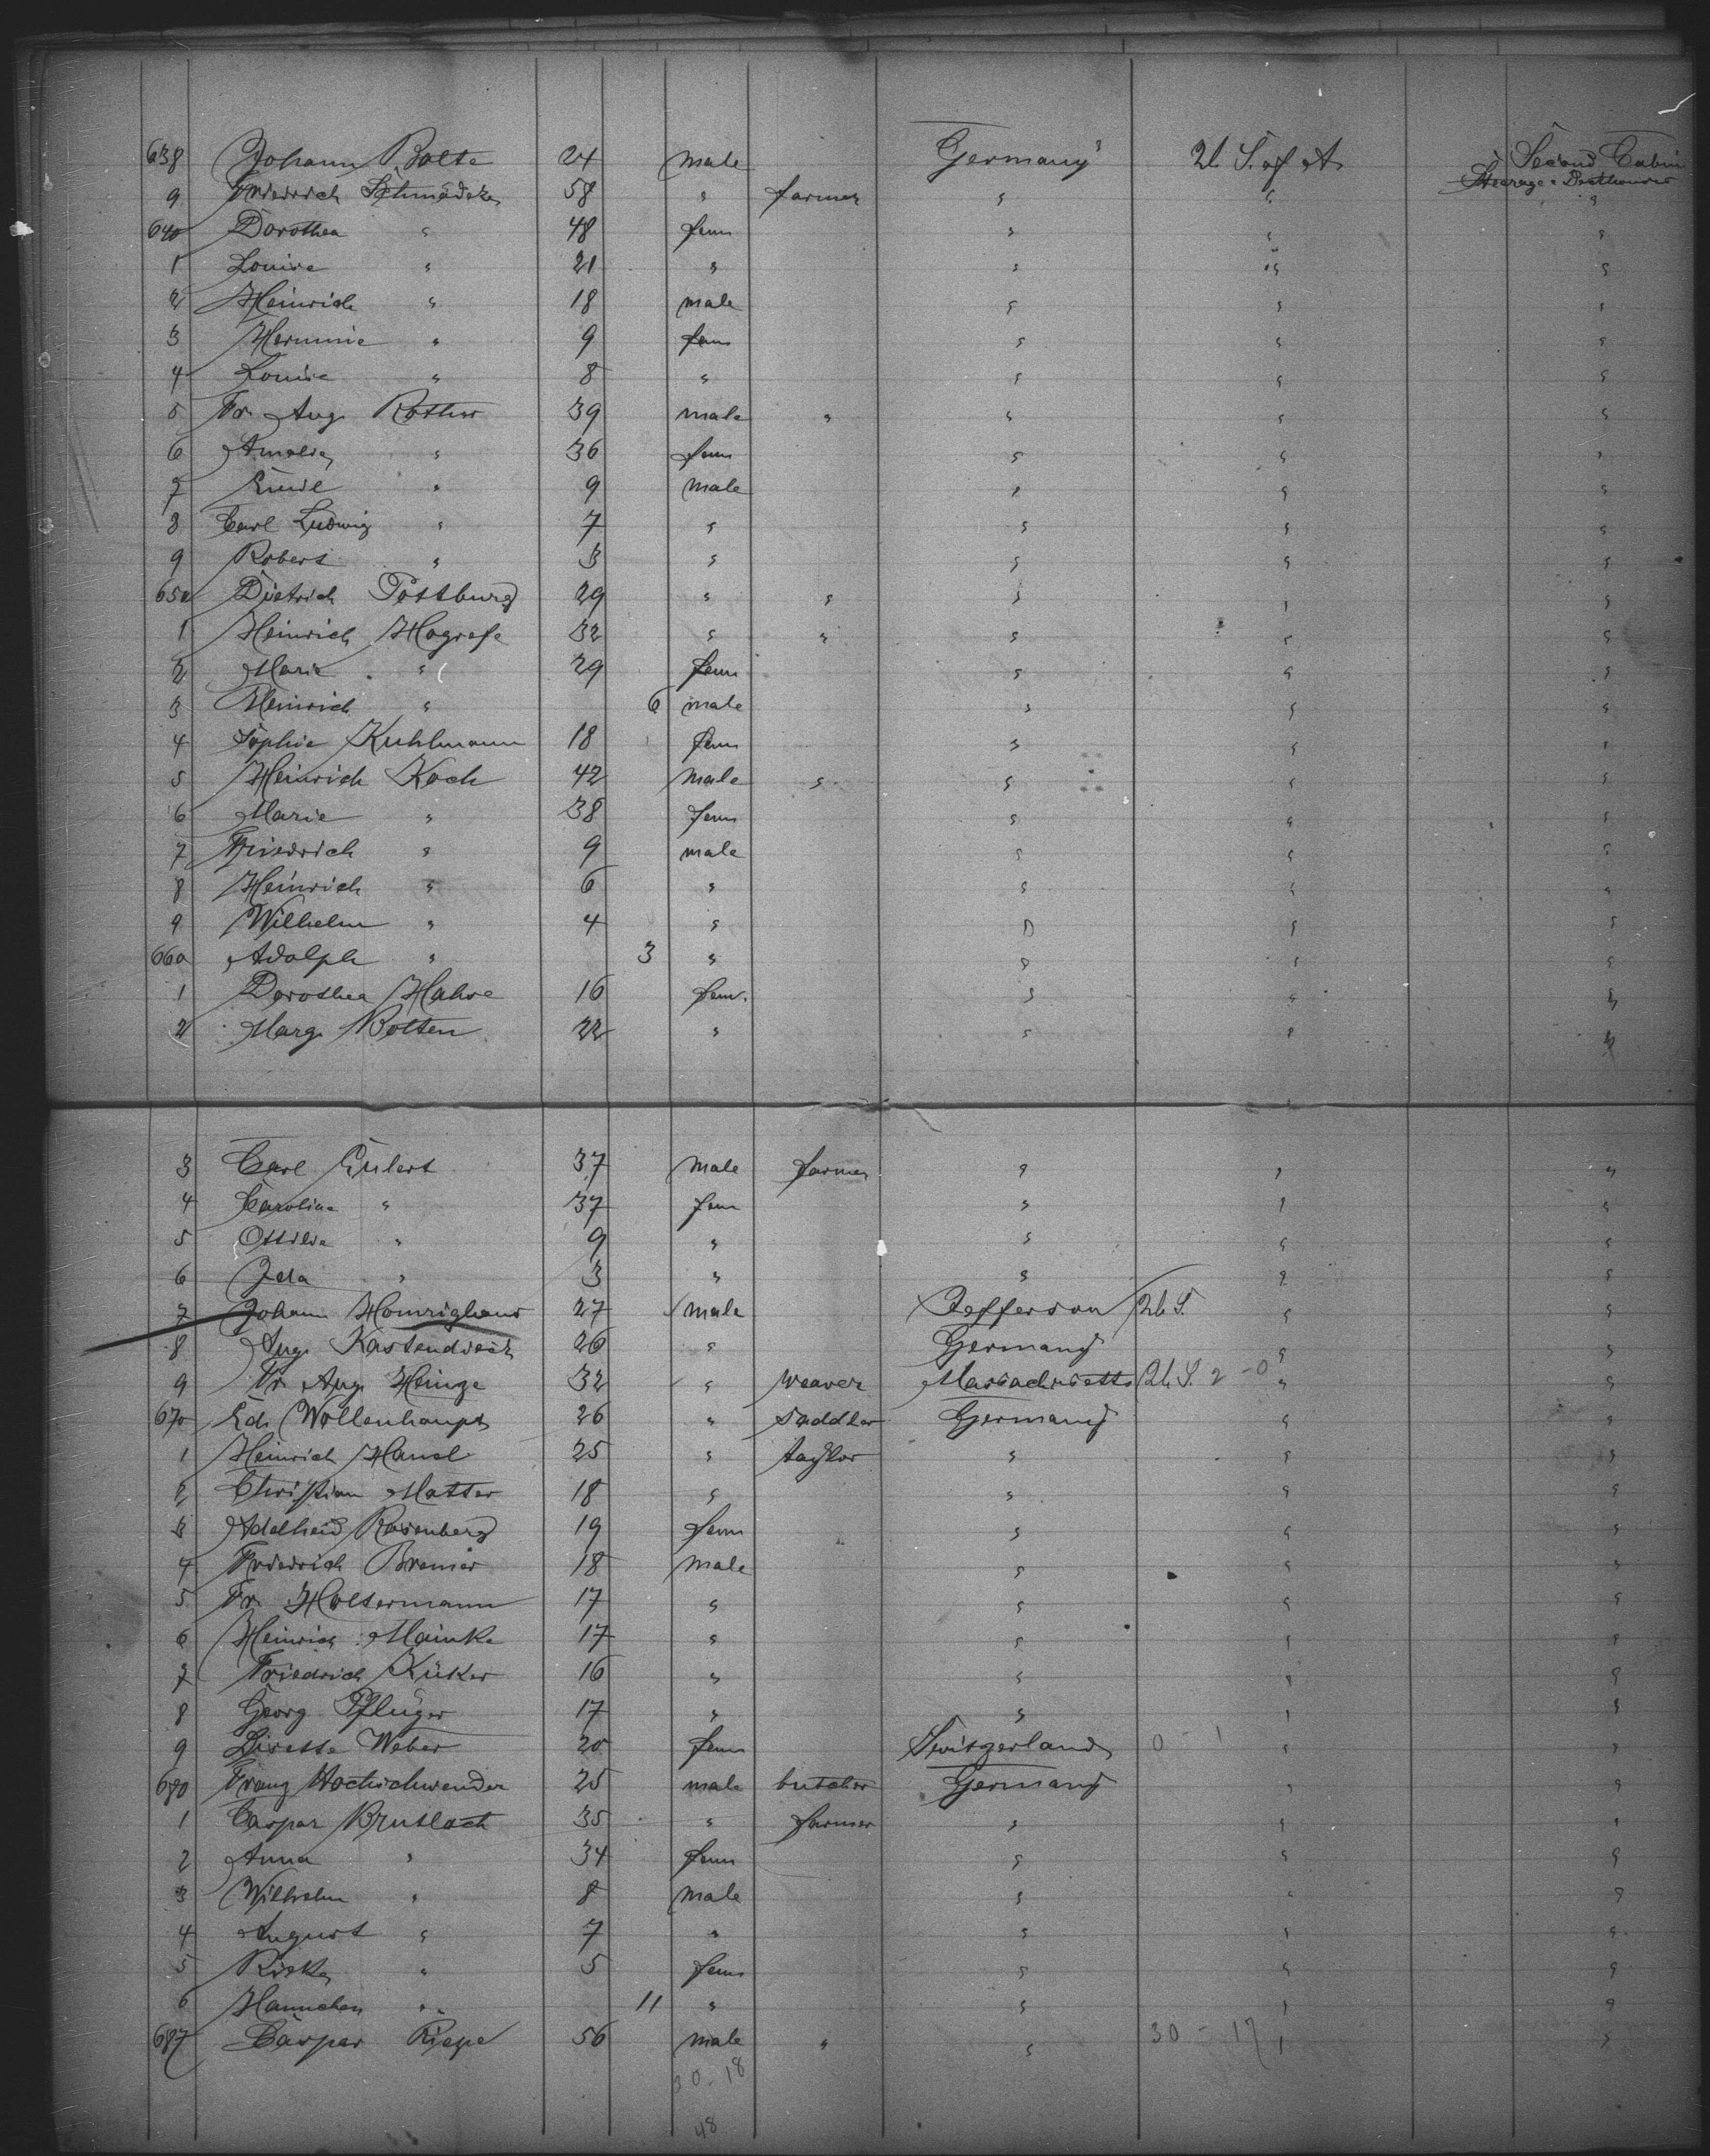 638 Johann Bolte 24 male Germany U. S. of A Second Cabin
Steerage
9 Friedrich Schmädeke 58 " farmer " " "
640 Dorothea " 48 fem " " "
1 Louise " 21 " " " "
2 Heinrich " 18 male " " "
3 Hermine " 9 fem " " "
4 Louise " 8 " " " "
5 Fr. Aug. Rother 39 male " " " "
6 Amalie " 36 fem " " "
7 Emil " 9 male " " "
8 Carl Ludwig " 7 " " " "
9 Robert " 3 " " " "
650 Dietrich Pottburg 29 " " " " "
1 Heinrich Hogrefe 32 " " " " "
2 Marie " 29 fem " " "
3 Heinrich " 6 male " " "
4 Sophie Kuhlmann 18 fem " " "
5 Heinrich Koch 42 male " " " "
6 Marie " 38 fem " " "
7 Friedrich " 9 male " " "
8 Heinrich " 6 " " " "
9 Wilhelm " 4 " " " "
660 Adolph " 3 " " " "
1 Dorothea Hahse 16 fem. " " "
2 Marg. Bolten 22 " " " "
3 Carl Eulert 37 male farmer " " "
4 Caroline " 37 fem " " "
5 Ottilie " 9 " " " "
6 Ida " 3 " " " "
7 Johann Homrighaus 27 male Jefferson U. S. " "
8 Aug. Kastendieck 26 " Germany " "
9 Fr. Aug. Heinze 32 " weaver Massachusetts U. S. 2 - 0 " "
670 Ed. Wollenhaupt 26 " saddler Germany " "
1 Heinrich Hand 25 " taylor " " "
2 Christian Matter 18 " " " "
3 Adelheid Rosenberg 19 fem " " "
4 Friedrich Bremer 18 male " " "
5 Fr. Holtermann 17 " " " "
6 Heinrich Mainke 17 " " " "
7 Friedrich Küker 16 " " " "
8 Georg Pflüger 17 " " " "
9 Lisette Weber 20 fem Switzerland 0 - 1 " "
680 Franz Hochschwender 25 male butcher Germany " "
1 Caspar Brutlach 35 " farmer " " "
2 Anna " 34 fem " " "
3 Wilhelm " 8 male " " "
4 August " 7 " " " "
5 Rieke " 5 fem " " "
6 Hannchen " 11 " " " "
687 Caspar Riepe 56 male " " 30 - 17 " "
30 - 18
48